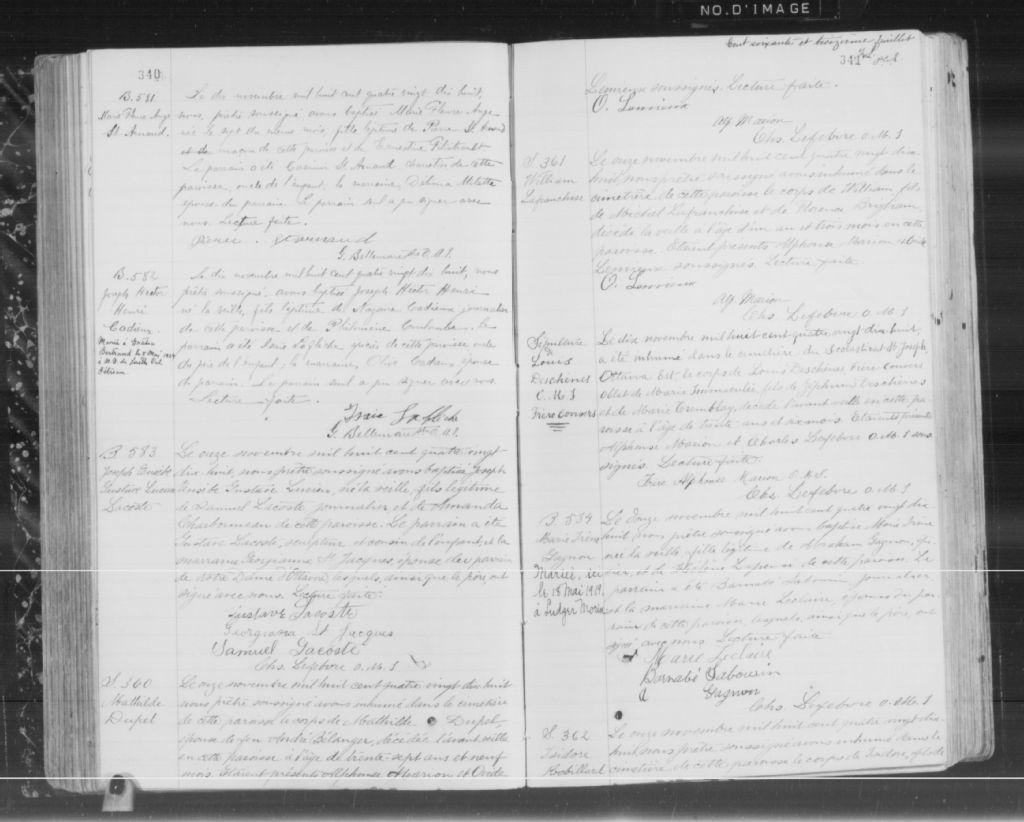 NO. D'IMAGE
340
B. 581
Marie Flore Ange
St. Amand.
Le dix novembre mil huit cent quatre vingt dix huit,
nous, prêtre soussigné avons baptisé Marie Flore Ange
née le sept du même mois, fille légitime de Pierre St. Amand
de cette paroisse et de Ernestine
Le parrain a été St. Amand de cette
paroisse, oncle de l'enfant, la marraine, Délima
épouse du parrain. Le parrain seul a pu signer avec
nous. Lecture faite.
Pierre St Amand
G. Bellemare O.M.I.
B. 582
Joseph Hector
Henri
Cadieux
Marié à
Bertrand le 5 Mai
Le dix novembre mil huit cent quatre vingt dix huit, nous
prêtre soussigné, avons baptisé Joseph Hector Henri
né la veille, fils légitime de Cadieux journalier
de cette paroisse et de Philomène Coulombe. Le
parrain a été de cette paroisse oncle
de l'enfant, la marraine, Cadieux, épouse
du parrain. Le parrain seul a pu signer avec nous.
Lecture faite.
G. Bellemare O.M.I.
B 583
Joseph Eusèbe
Gustave Lucien
Lacoste
Le onze novembre mil huit cent quatre vingt
dix huit, nous prêtre soussigné avons baptisé Joseph
Eusèbe Gustave Lucien, né la veille, fils légitime
de Samuel Lacoste journalier et de Amanda
Charbonneau de cette paroisse. Le parrain a été
Gustave Lacoste, sculpteur et cousin de l'enfant, et la
marraine Georgianna St Jacques, épouse du parrain
de Notre Dame d'Ottawa, lesquels, ainsi que le père, ont
signé avec nous. Lecture faite.
Gustave Lacoste
Georgiana St Jacques
Samuel Lacoste
Chs. Lefebvre O.M.I
S. 360
Mathilde
Dupel
Le onze novembre mil huit cent quatre vingt dix huit
nous prêtre soussigné avons inhumé dans le cimetière
de cette paroisse le corps de Mathilde Dupel,
épouse de feu André Bélanger, décédée l'avant veille
en cette paroisse à l'âge de trente sept ans et neuf
mois. Étaient présents Alphonse Marion et Ovide
Cent soixante et treizième feuillet
341
Lemieux soussignés. Lecture faite.
O. Lemieux
Alp. Marion
Chs. Lefebvre O.M.I
S. 361
William
Lafranchise
Le onze novembre mil huit cent quatre vingt dix
huit, nous prêtre soussigné avons inhumé dans le
cimetière de cette paroisse le corps de William, fils
de Michel Lafranchise et de Florence Brigham,
décédé la veille à l'âge d'un an et trois mois en cette
paroisse. Étaient présents Alphonse Marion et Ovide
Lemieux soussignés. Lecture faite.
O. Lemieux
Alp. Marion
Chs. Lefebvre O.M.I
Sépulture
de
Louis
Deschênes
O.M.I
Frère Convers
Le dix novembre mil huit cent quatre vingt dix huit,
a été inhumé dans le cimetière du Scolasticat St Joseph,
Ottawa Est, le corps de Louis Deschênes Frère Convers
Oblat de Marie Immaculée, fils de Deschênes
et de Marie Tremblay, décédé l'avant veille en cette pa-
roisse à l'âge de trente ans et six mois. Étaient présents
Alphonse Marion et Charles Lefebvre O.M.I sous-
signés. Lecture faite.
Frère Alphonse Marion O.M.I.
Chs. Lefebvre O.M.I
B. 584
Marie Irène
Gagnon
Mariée, ici
le 18 Mai 1919,
à Ludger Morin
Le douze novembre mil huit cent quatre vingt dix
huit, nous prêtre soussigné avons baptisé Marie Irène
née la veille, fille légitime de Abraham Gagnon,
et de de cette paroisse. Le
parrain a été Barnabé Sabourin, journalier,
et la marraine Marie Leclaire, épouse du par-
rain de cette paroisse, lesquels, ainsi que le père, ont
signé avec nous. Lecture faite
Marie Leclaire
Barnabé Sabourin
A Gagnon
Chs. Lefebvre O.M.I
S. 362
Isidore
Robillard
Le onze novembre mil huit cent quatre vingt dix
huit nous prêtre soussigné avons inhumé dans le
cimetière de cette paroisse le corps de Isidore, fils de